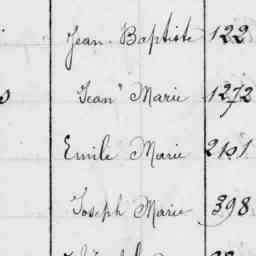 Jean Baptiste 122
Jean Marie 1272
Emile Marie 2101
Joseph Marie 398